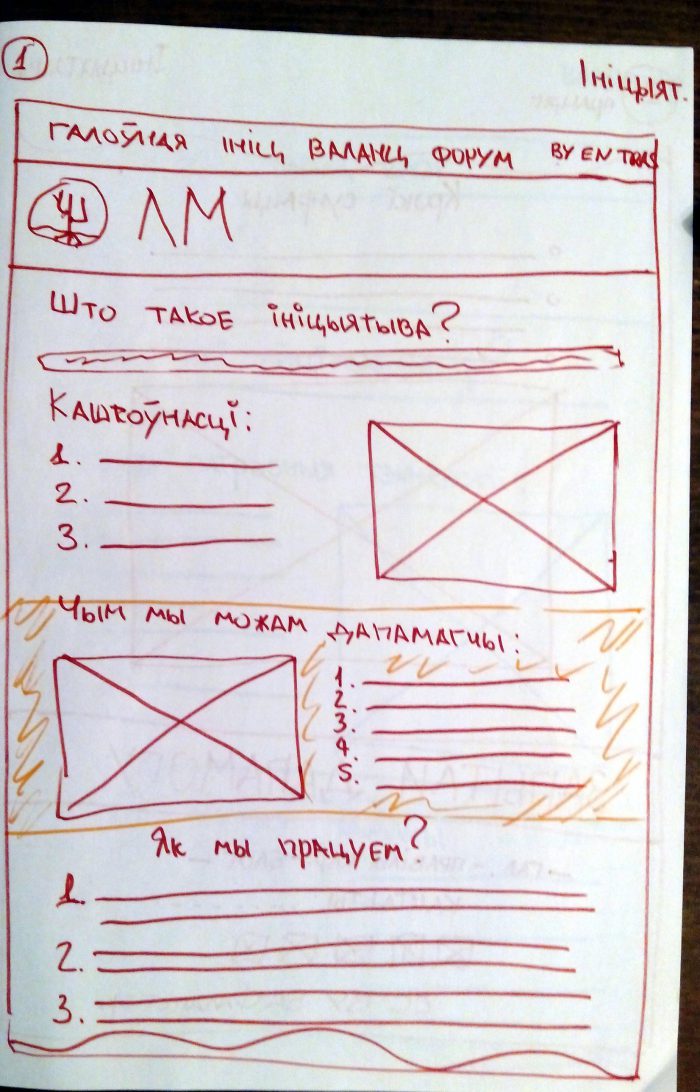 1
Ініцыят.
ГАЛОЎНАЯ ІНІЦ ВАЛАНЦ ФОРУМ BY EN TRAS
ЛМ
Што такое ініцыятыва?
Кашкоўнасці:
1.
2.
3.
Чым мы можам дапамагчы:
1.
2.
3.
4.
5.
Як мы працуем?
1.
2.
3.